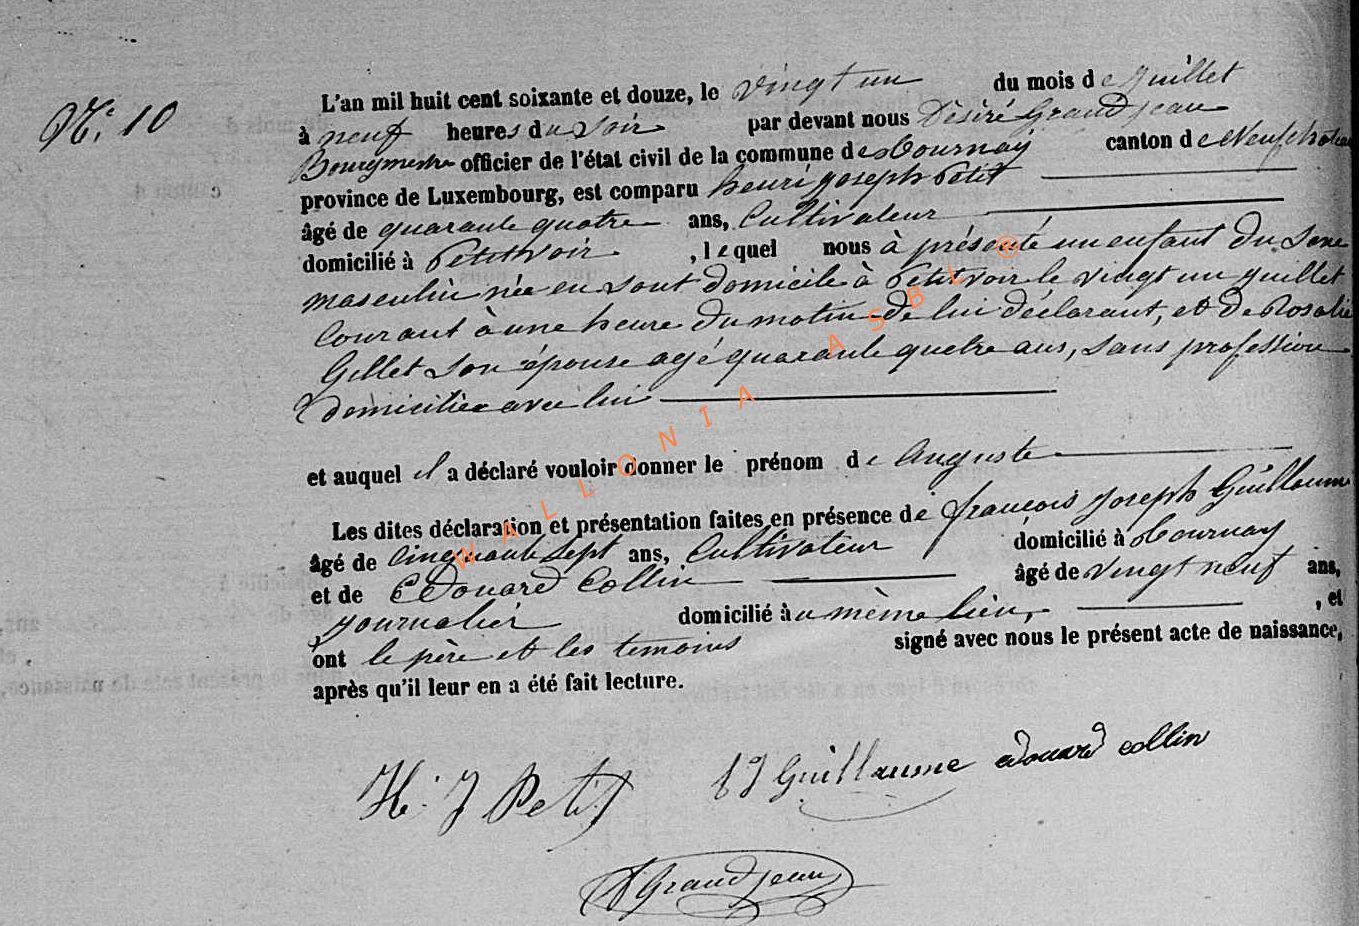 N.° 10
L'an mil huit cent soixante et douze, le vingt un du mois de juillet
à neuf heures du soir par devant nous Désiré Grandjean
Bourgmestre officier de l'état civil de la commune de Tournay canton de Neufchateau
province de Luxembourg, est comparu henri joseph Petit
âgé de quarante quatre ans, Cultivateur
domicilié à Petitvoir, lequel nous à présenté un enfant du sexe
masculin née en sont domicile à Petitvoir le vingt un juillet
Courant à une heure du matin de lui déclarant, et de Rosalie
Gillet son épouse agé quarante quatre ans, sans profession
domiciliée avec lui
et auquel il a déclaré vouloir donner le prénom de Auguste
Les dites déclaration et présentation faites en présence de françois joseph Guillaume
âgé de Cinquante sept ans, Cultivateur domicilié à Tournay
et de Edouard Collin âgé de vingt neuf ans,
journalier domicilié au mème lieu, , et
ont le père et les temoins signé avec nous le présent acte de naissance,
après qu'il leur en a été fait lecture.
H. J Petit fJ Guillaume edouard collin
D Grandjean
WALLONIA ASBL ®